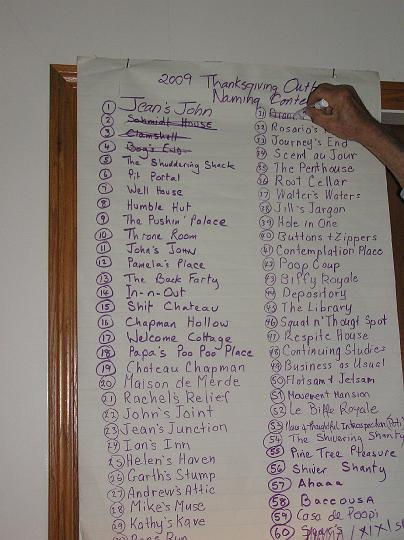 2009 Thanksgiving
Naming
1 Jean's John
2 Schmidt House
3 Clamshell
4 Bog's End
5 The Shuddering Shack
6 Pit Portal
7 Well House
8 Humble Hut
9 The Pushin' Palace
10 Throne Room
11 John's John
12 Pamela's Place
13 The Back Forty
14 In-n-Out
15 Shit Chateau
16 Chapman Hollow
17 Welcome Cottage
18 Papa's Poo Poo Place
19 Chateau Chapman
20 Maison de Merde
21 Rachel's Relief
22 John's Joint
23 Jean's Junction
24 Ian's Inn
25 Helen's Haven
26 Garth's Stump
27 Andrew's Attic
28 Mike's Muse
29 Kathy's Kave
Run
31
32 Rosario's
33 Journey's End
34 Scent au Jour
35 The Penthouse
36 Root Cellar
37 Walter's Waters
38 Jill's Jargon
39 Hole in One
40 Buttons + Zippers
41 Contemplation Place
42 Poop Coup
43 Biffy Royale
44 Depository
45 The Library
46 Squat n' Thought Spot
47 Respite House
48 Continuing Studies
49 Business as Usual
50 Flotsam + Jetsam
51 Movement Mansion
52 Le Biffe Royale
53 Thoughtful Introspection
54 The Shivering Shanty
55 Pine Tree Pleasure
56 Shiver Shanty
57 Ahaaa
58 Baccousa
59 Casa de Poopi
60